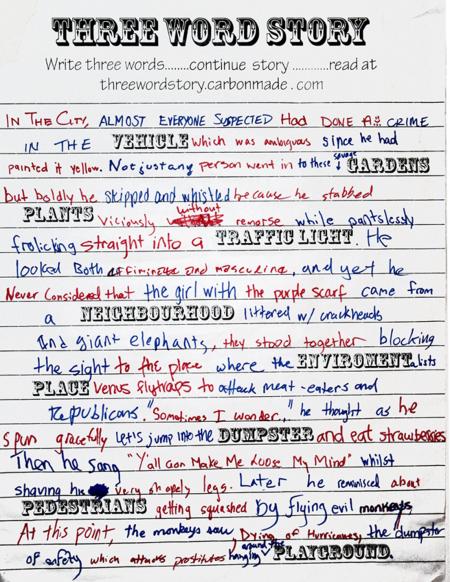 THREE WORD STORY
Write three words.......continue story ............read at
threewordstory.carbonmade.com
IN THE CITY, ALMOST EVERYONE SUSPECTED HAD DONE A CRIME
IN THE VEHICLE which was ambiguous since he had
painted it yellow. Not just any person went in to these savage GARDENS
but boldly he skipped and whistled because he stabbed
PLANTS viciously without remorse while pantslessly
frolicking straight into a TRAFFIC LIGHT. He
looked Both affiminate and masculine, and yet he
Never Considered that the girl with the purple scarf came from
a NEIGHBOURHOOD littered w/ crackheads
and giant elephants, they stood together blocking
the sight to the place where the ENVIROMENTalists
PLACE venus flytraps to attack meat-eaters and
Republicans. "Sometimes I wonder.," he thought as he
spun gracefully let's jump into the DUMPSTER and eat strawberries
Then he sang "Y'all Gon Make Me Loose My Mind" whilst
shaving his very shapely legs. Later he reminisced about
PEDESTRIANS getting squashed by flying evil monkeys
At this point, the monkeys saw, Dying of Hurricanes, the "dumpster
of safety which attracts prostitutes hanging around the PLAYGROUND.